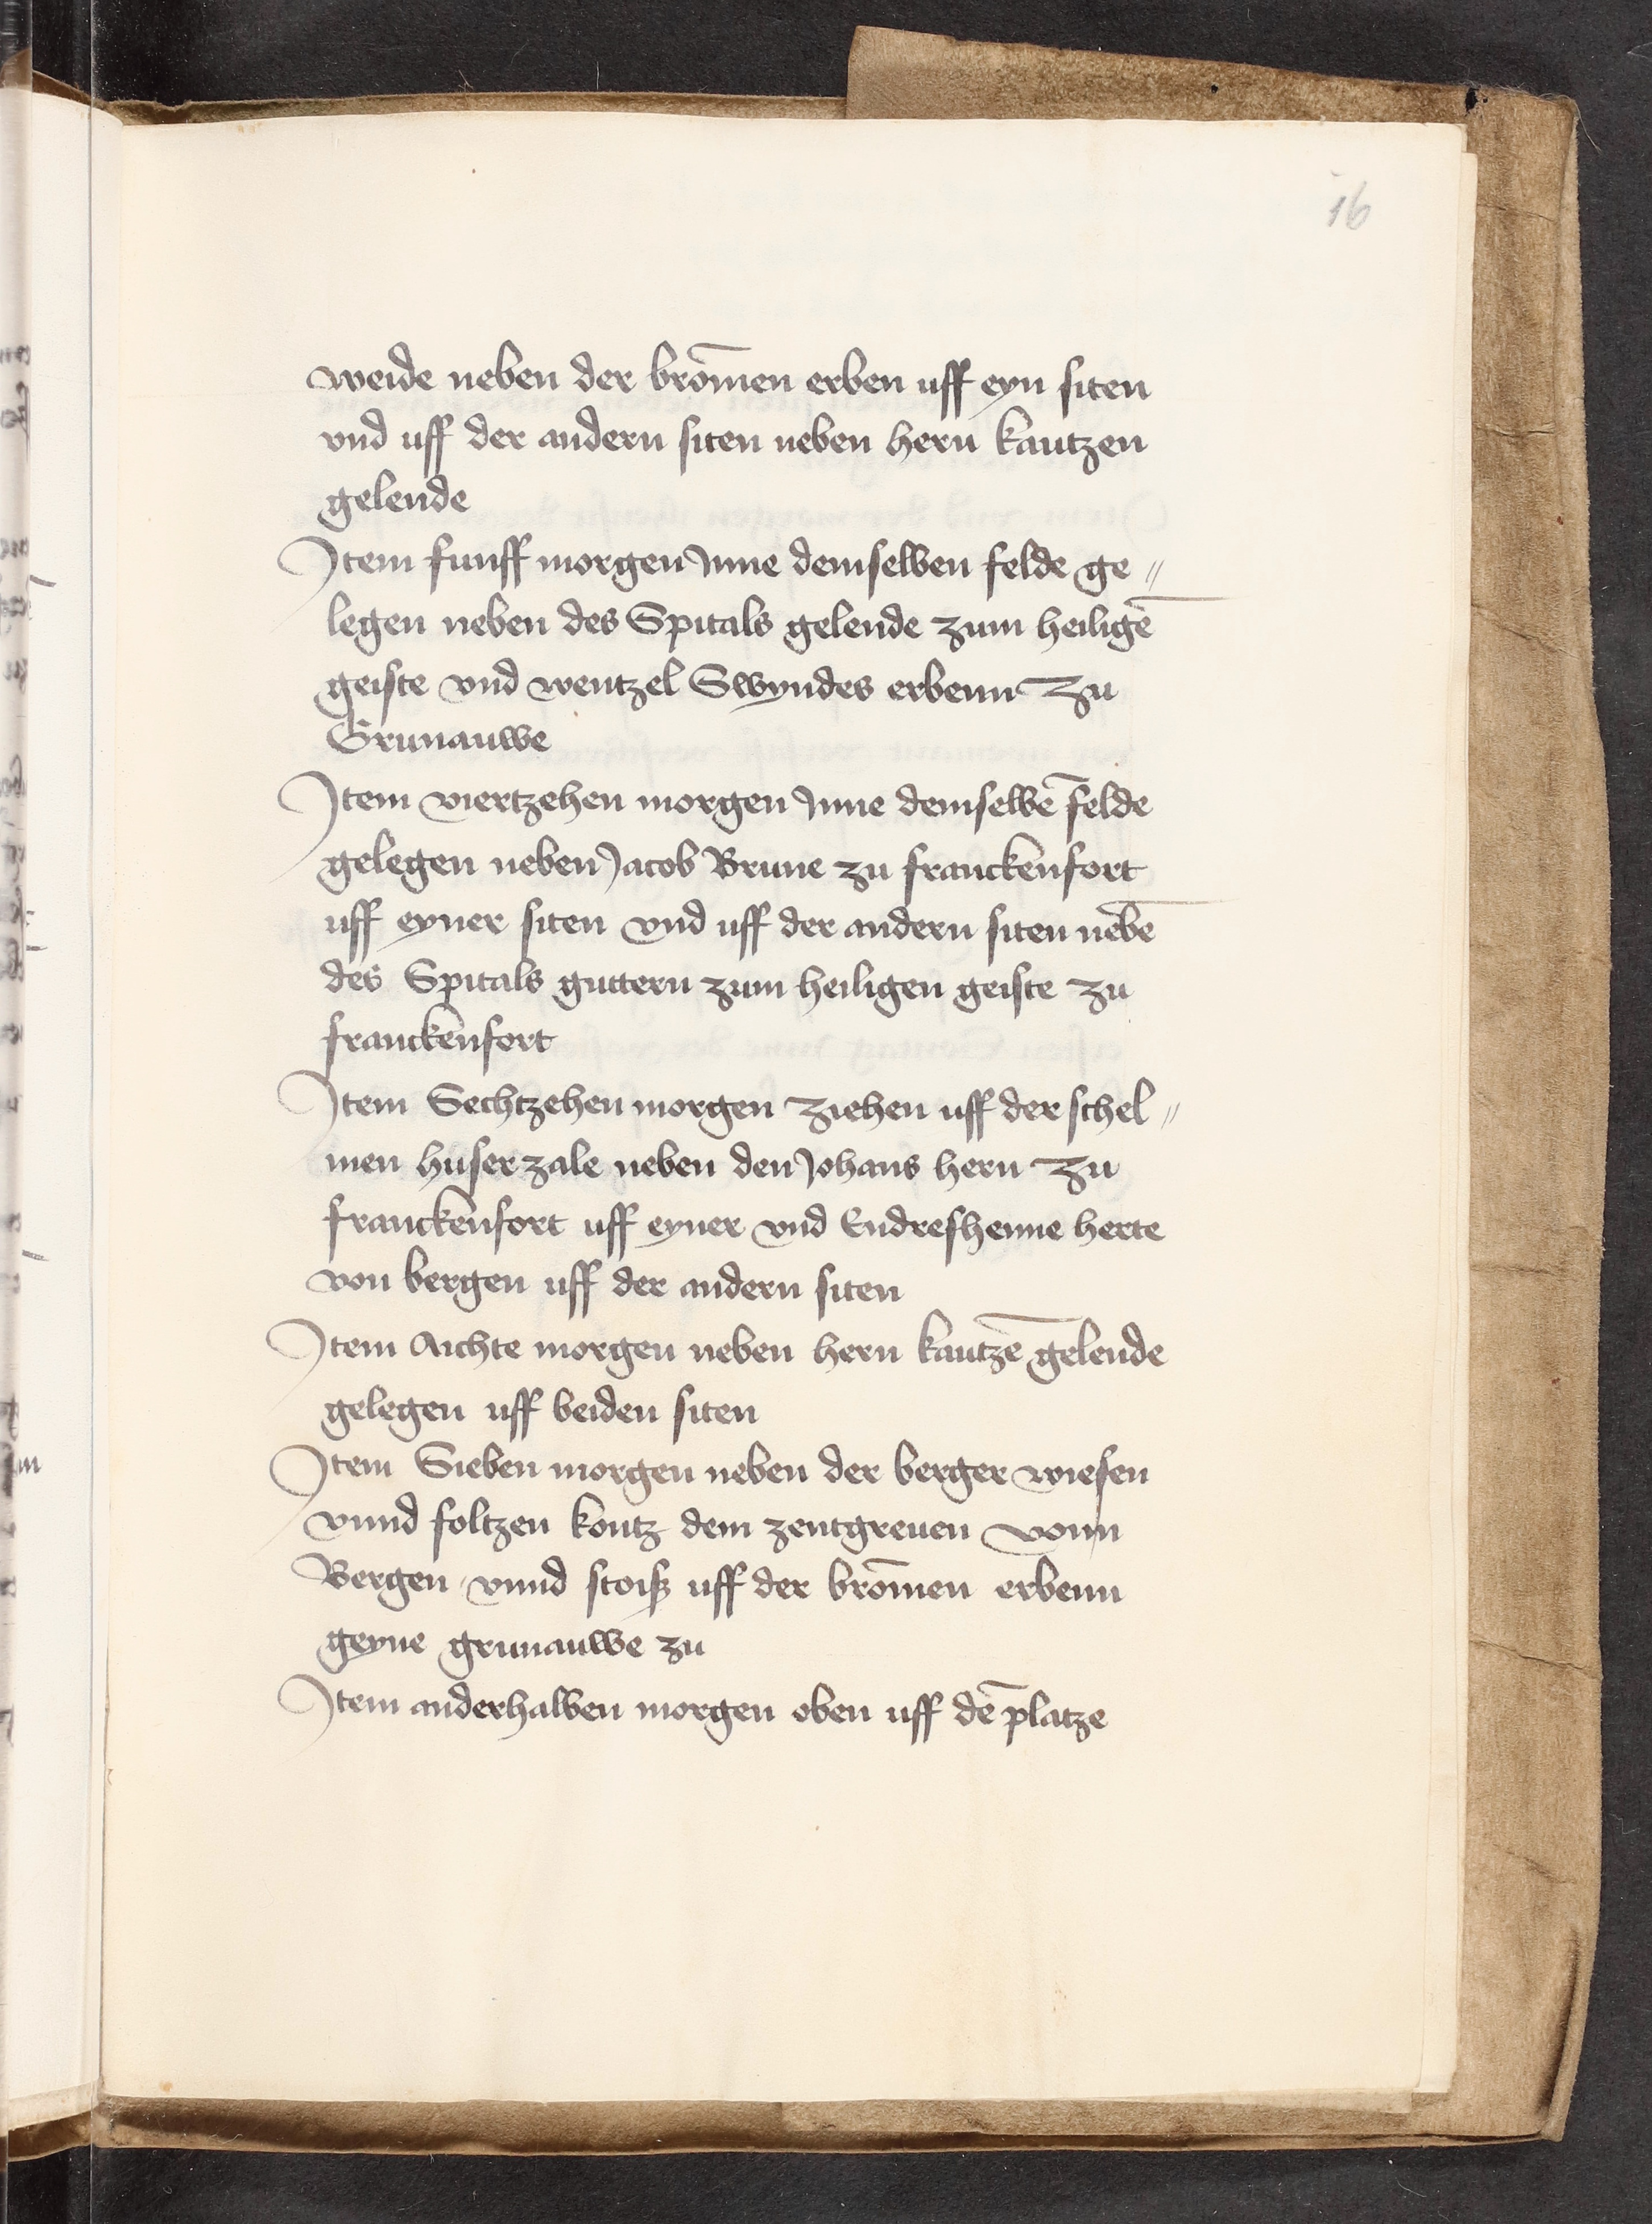 16
weide neben der brom̄en erben uff eyn siten
vnd uff der andern siten neben hern kautzen
gelende
Jtem funff morgen Jnne demselben felde ge„
legen neben des Spitals gelende zum heiligē
geiste vnd wentzel Swyndes erbenn zu
Grunauwe
Jtem viertzehen morgen Jnne demselbē felde
gelegen neben Jacob Brune zu franckenfort
uff eyner siten vnd uff der andern siten nebē
des Spitals guttern zum heiligen geiste zu
franckenfort
Jtem Sechtzehen morgen ziehen uff der schel„
men huser zale neben den Johans hern zu
franckenfort uff eyner vnd Endreshenne herte
von bergen uff der andern siten
Jtem Aichte morgen neben hern kautzē gelende
gelegen uff beiden siten
Jtem Sieben morgen neben der berger wiesen
vnnd foltzen kontz dem zentgreuen vonn
Bergen vnnd stoiß uff der brom̄en erbenn
geyne grunauwe zu
Jtem anderhalben morgen oben uff dē platze